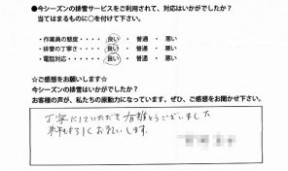 ●今シーズンの排雪サービスをご利用されて、対応はいかがでしたか？
当てはまるものに○を付けて下さい。
・作業員の態度・・・・ 良い ・ 普通 ・ 悪い
・排雪の丁寧さ・・・・ 良い ・ 普通 ・ 悪い
・電話対応・・・・・・ 良い ・ 普通 ・ 悪い
☆ご感想をお願いします☆
今シーズンの排雪はいかがでしたか？
お客様の声が、私たちの原動力になっています。ぜひ、ご感想をお聞かせ下さい。
丁寧にしていただき有難とうございました
来年もよろしくお願いします。